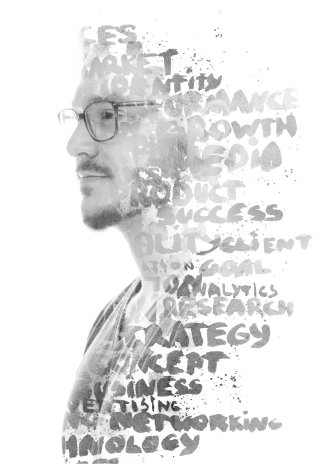 CES
MARKET
IDENTITY
FORMANCE
GROWTH
MEDIA
PRODUCT
SUCCESS
ALITY CLIENT
ATION GOAL
ANALYTICS
RESEARCH
STRATEGY
NCEPT
BUSINESS
VERTISING
NETWORKING
HNOLOGY